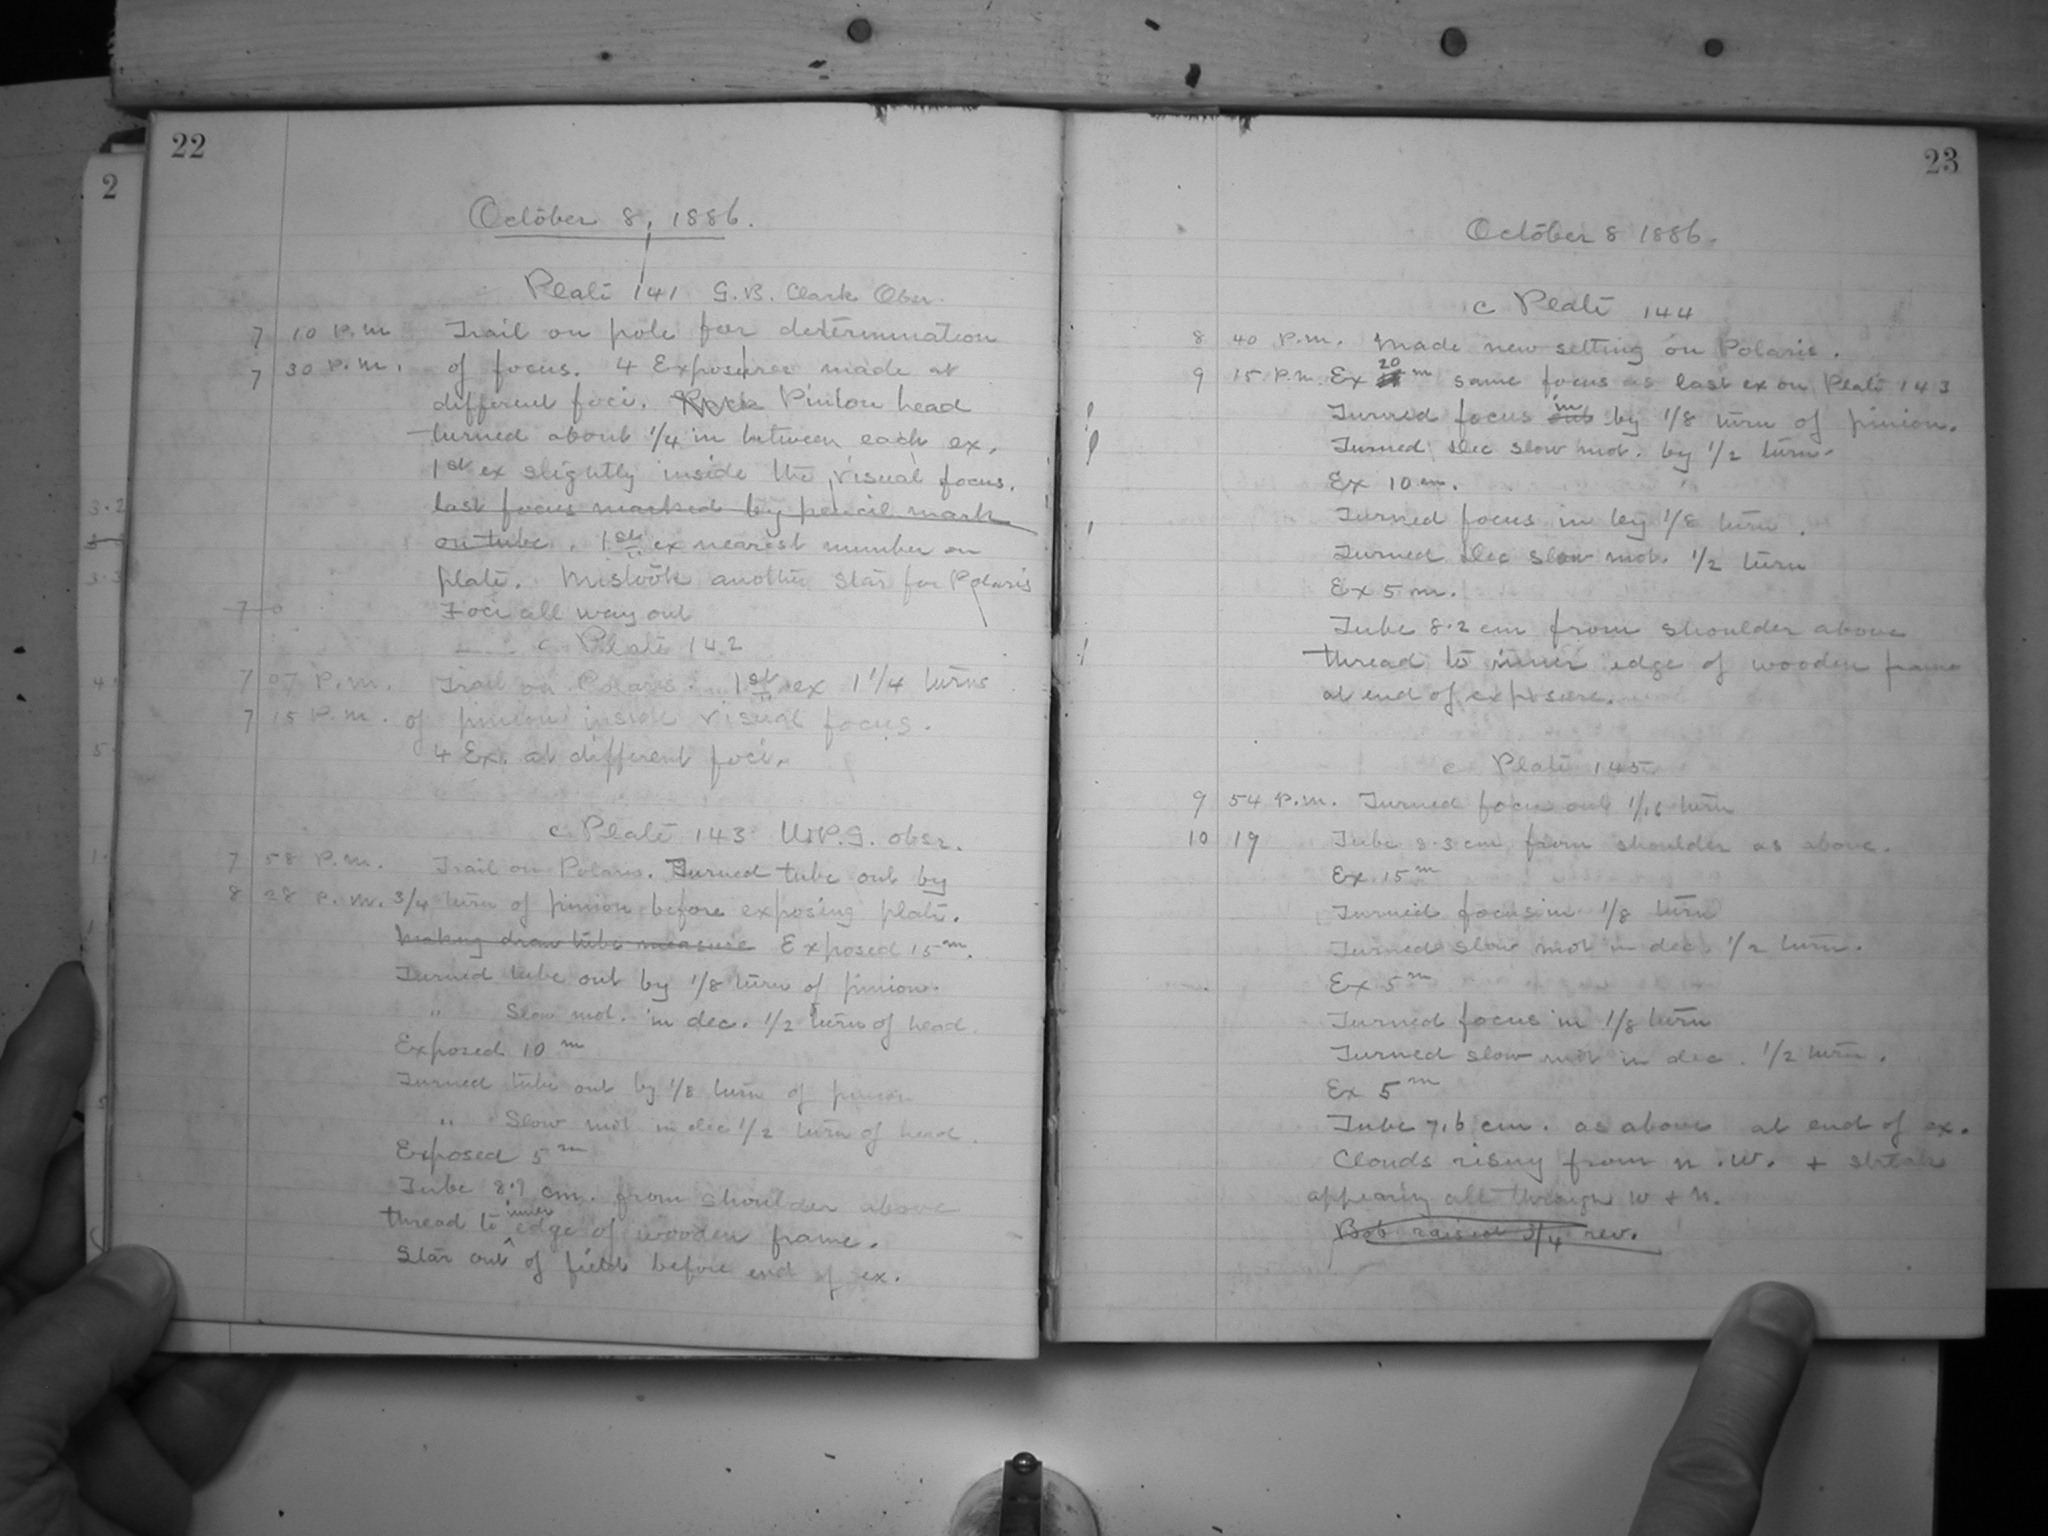 22
October 8, 1886.
Plate 141 G.B. Clark Obser.
7 10 P.M Trail on pole for determination
7 30 P.M. of focus. 4 Exposures made at
different foci. Pinion head
turned about 1/4 in between each ex.
1st ex slightly inside the visual focus.
last focus marked by pencil mark
on tube. 1st ex nearest number on
plate. Mistook another star for Polaris
7 0 Foci all way out
c Plate 142
7 07 P.M. Trail on Polaris. 1st ex 1 1/4 turns
7 15 P.M. of pinion inside visual focus.
4 Ex. at different foci.
c Plate 143 W.P.G. obsr.
7 58 P.M. Trail on Polaris. Turned tube out by
8 28 P.M. 3/4 turn of pinion before exposing plate.
Making draw tube measure Exposed 15m.
Turned tube out by 1/8 turn of pinion.
" Slow mot. in dec. 1/2 turn of head.
Exposed 10 m
Turned tube out by 1/8 turn of pinion
" Slow mot in dec 1/2 turn of head.
Exposed 5 m
Tube 8.9 cm. from shoulder above
thread to inner edge of wooden frame.
Star out of field before end of ex.
23
October 8 1886.
c Plate 144
8 40 P.M. Made new setting on Polaris.
9 15 P.M Ex 20 m same focus as last ex on Plate 143
Turned focus in by 1/8 turn of pinion.
Turned Dec slow mot. by 1/2 turn.
Ex 10 m.
Turned focus in by 1/8 turn.
Turned Dec slow mot. 1/2 turn
Ex 5 m.
Tube 8.2 cm from shoulder above
thread to inner edge of wooden frame
at end of exposure.
c Plate 145
9 54 P.M. Turned focus out 1/16 turn
10 19 Tube 8.3 cm from shoulder as above.
Ex 15 m
Turned focus in 1/8 turn
Turned slow mot in dec. 1/2 turn.
Ex 5 m
Turned focus in 1/8 turn
Turned slow mot in dec. 1/2 turn.
Ex 5 m
Tube 7.6 cm. as above at end of ex.
Clouds rising from N.W. +
appearing all through W + N.
Bob raised 3/4 rev.
2